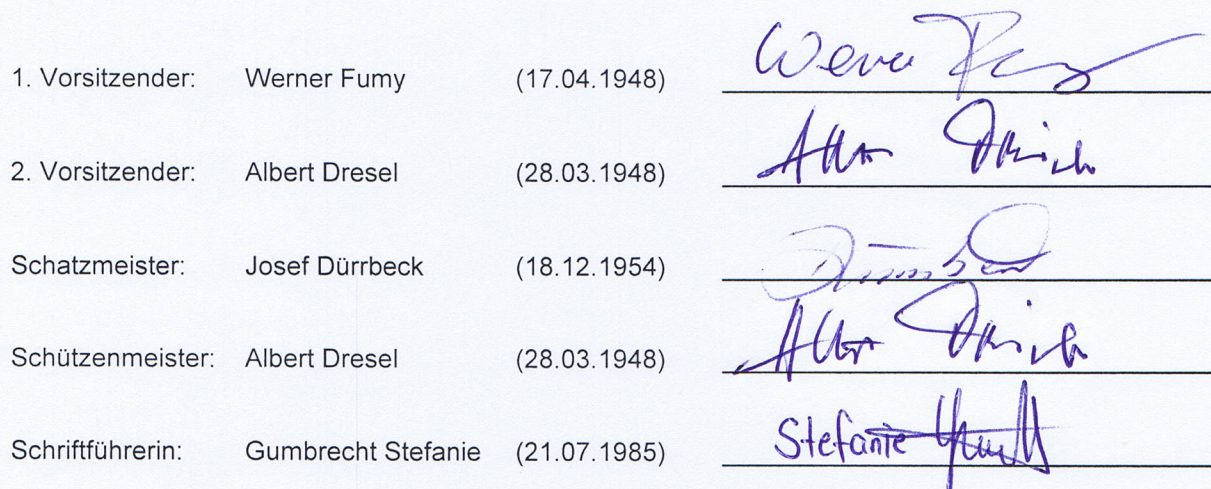 1. Vorsitzender: Werner Fumy (17.04.1948) Werner Fumy
2. Vorsitzender: Albert Dresel (28.03.1948)
Schatzmeister: Josef Dürrbeck (18.12.1954)
Schützenmeister: Albert Dresel (28.03.1948)
Schriftführerin: Gumbrecht Stefanie (21.07.1985) Stefanie